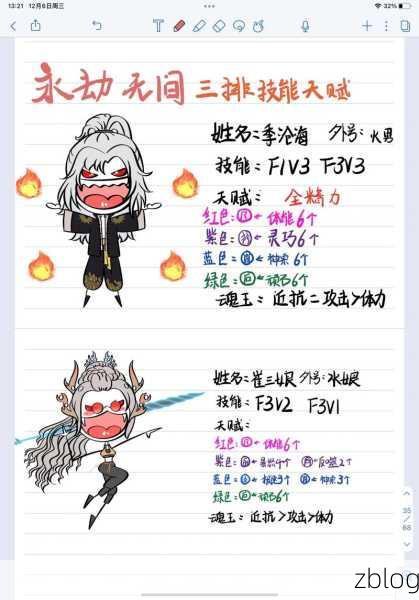 13:21 12月6日周三
32%
永劫无间 三排技能天赋
姓名:季沧海 外号:火男
技能:F1V3 F3V3
天赋: 全精力
红色: 体能6个
紫色: 灵巧6个
蓝色: 神索6个
绿色: 顽石6个
魂玉:近抗=攻击>体力
姓名:崔三娘 外号:水娘
技能:F3V2 F3V1
天赋:
红色: 体能6个
紫色:
蓝色: 3个 神索3个
绿色: 顽石6个
魂玉:近抗>攻击>体力
35
/
68
zblog